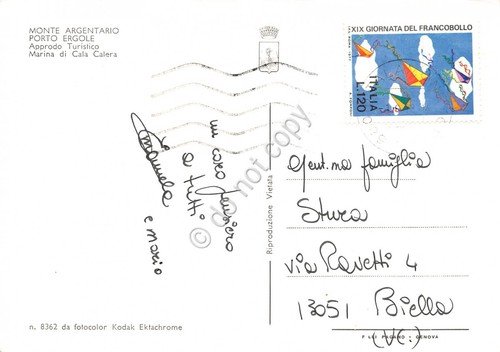 MONTE ARGENTARIO
PORTO ERGOLE
Approdo Turistico
Marina di Cala Calera
XIX GIORNATA DEL FRANCOBOLLO
ITALIA
L.120
un caro pensiero
a tutti
Emanuela
e Mario
do not copy
Riproduzione Vietata
Gent.ma famiglia
Stura
via Ravetti 4
13051 Biella
(VC.)
n. 8362 da fotocolor Kodak Ektachrome
F.LLI PAGANO - GENOVA